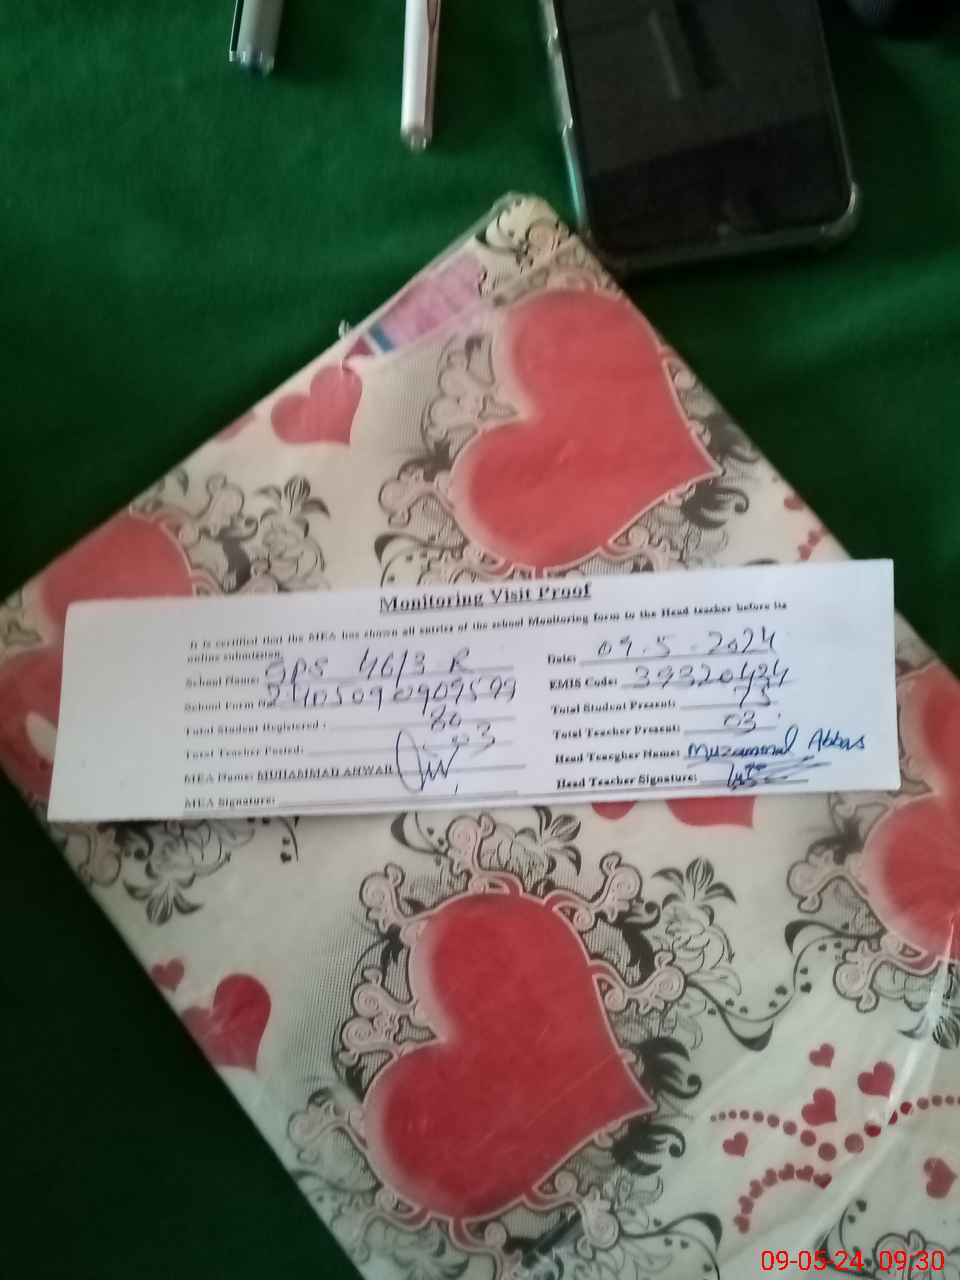 Monitoring Visit Proof
It is certified that the MEA has shown all entries of the school Monitoring form to the Head teacher before its
online submission.
School Name: GPS 46/3 R
Date: 09.5.2024
School Form No
EMIS Code: 39320434
Total Student Registered: 80
Total Student Present: 75
Total Teacher Posted: 03
Total Teacher Present: 03
MEA Name: MUHAMMAD ANWAR
Head Teacher Name: Muzammal Abbas
MEA Signature:
Head Teacher Signature:
09-05-24 09:30